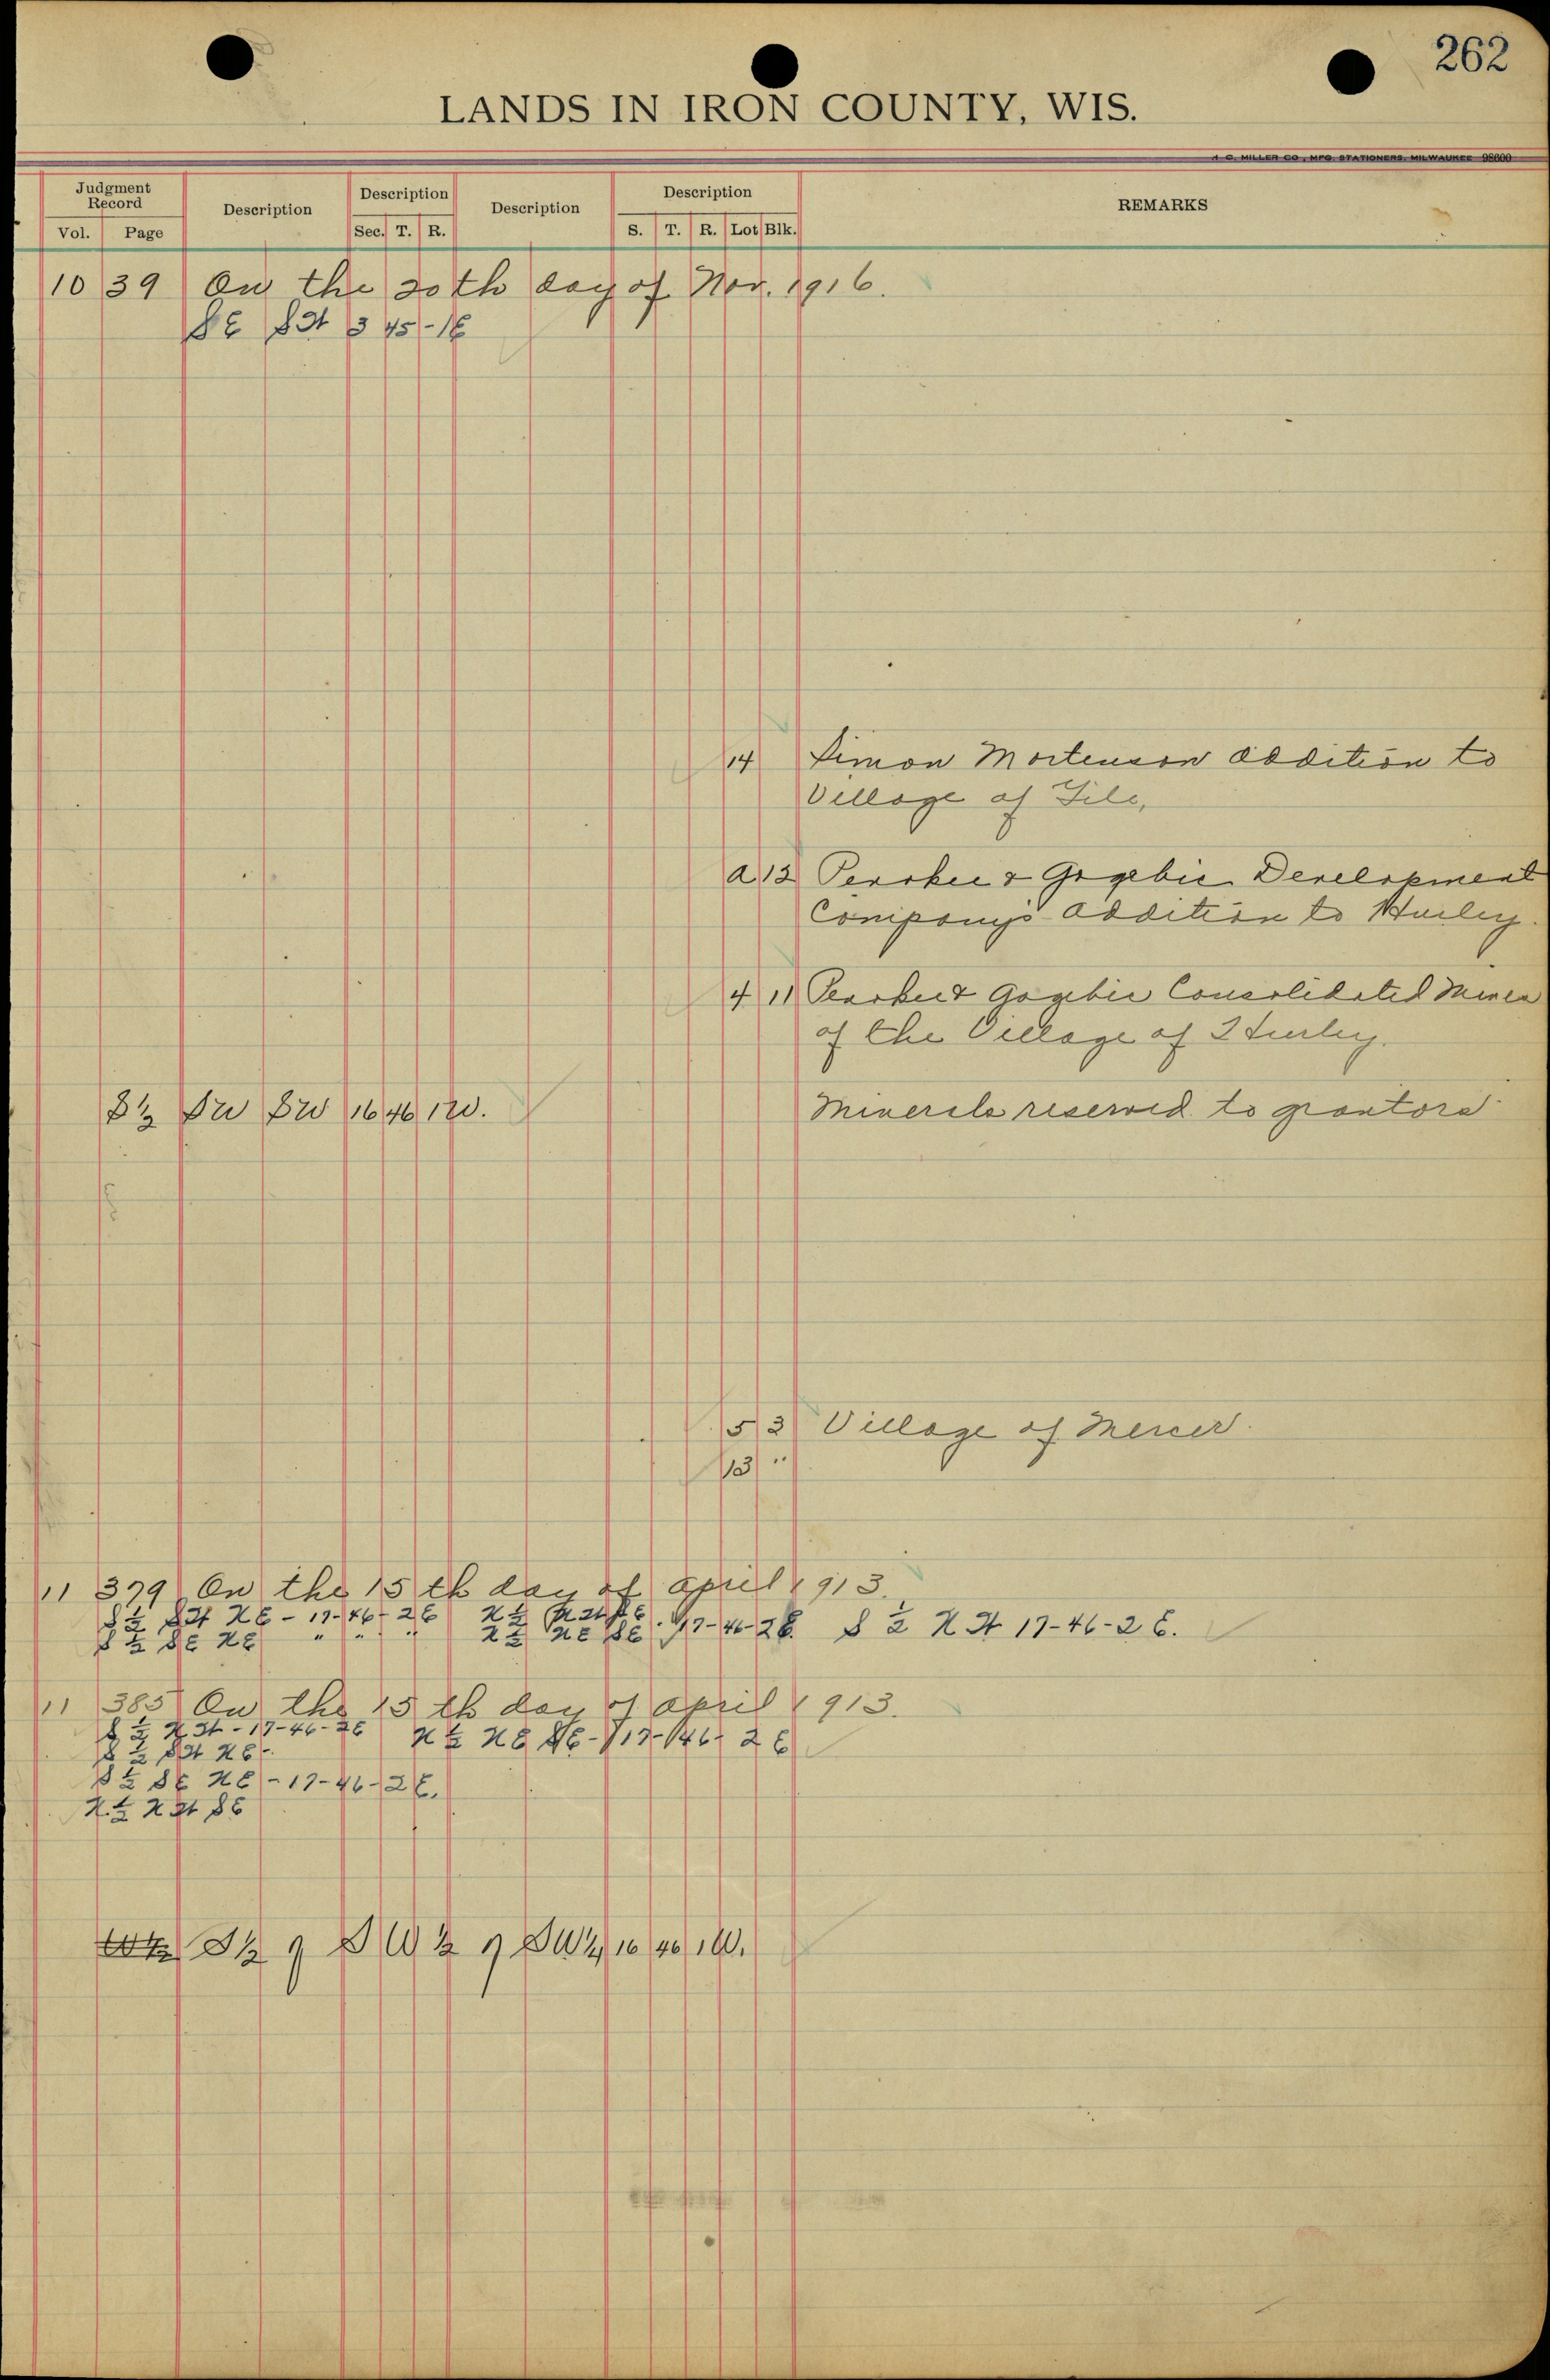 262
LANDS IN IRON COUNTY, WIS.
H. C. MILLER CO., MFG. STATIONERS, MILWAUKEE 98600
Judgment Record Description Description Description Description REMARKS
Vol. Page Sec. T. R. S. T. R. Lot Blk.
10 39 On the 20th day of Nov. 1916.
SE SW 3 45-1E
14 Simon Mortenson addition to
Village of Gile,
a 12 Penokee & Gogebic Development
Company's addition to Hurley.
4 11 Penokee & Gogebic Consolidated Mines
of the Village of Hurley.
S½ SW SW 16 46 1W. Minerals reserved to grantors
5 3 Village of Mercer.
13 "
11 379 On the 15th day of April 1913.
S½ SW NE - 17-46-2E N½ NW SE
S½ SE NE " " " N½ NE SE 17-46-2E. S½ NW 17-46-2E.
11 385 On the 15th day of April 1913.
S½ NW - 17-46-2E N½ NE SE - 17-46-2E
S½ SW NE -
S½ SE NE - 17-46-2E.
N.½ NW SE
W½ S½ of SW ¼ of SW¼ 16 46 1W.